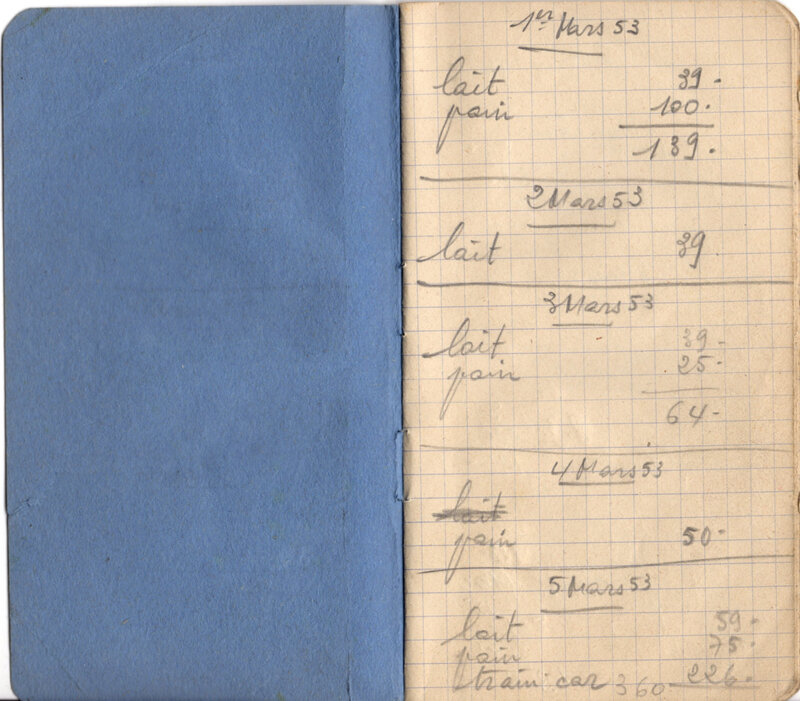 1er Mars 53
lait 39-
pain 100.
139.
2 Mars 53
lait 39
3 Mars 53
lait 39-
pain 25-
64-
4 Mars 53
lait
pain 50-
5 Mars 53
lait 59-
pain 75-
train. car 360 226-